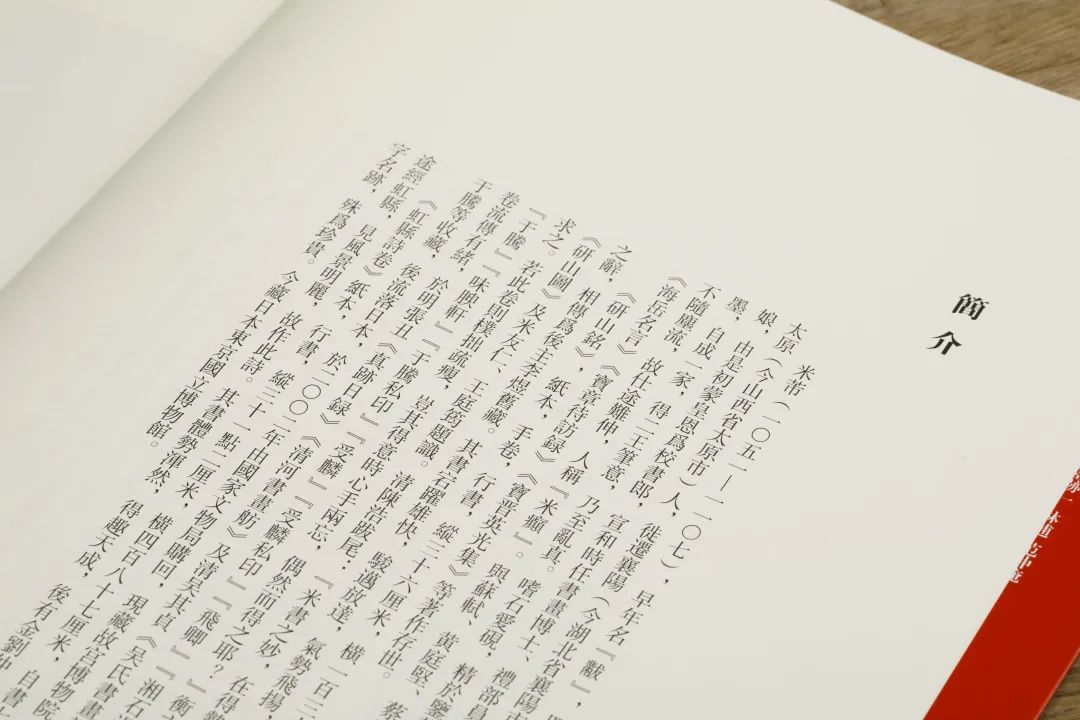 簡介
米芾(一〇五一—一一〇七),早年名『黻』,
太原(今山西省太原市)人,徙遷襄陽(今湖北省襄陽市
娘,由是初蒙皇恩爲校書郎,宣和時任書畫博士、禮部員
墨,自成一家,得二王筆意,乃至亂真。嗜石愛硯,精於鑒
不隨塵流,故仕途難伸,人稱『米癲』。與蘇軾、黃庭堅、蔡
《海岳名言》《寶章待訪録》《寶晉英光集》等著作存世。
《研山銘》,紙本,手卷,行書,縱三十六厘米,橫一百三
之辭,相傳爲後主李煜舊藏。其書宕躍雄快,駿邁放達,氣勢飛揚,
《研山圖》及米友仁、王庭筠題識。清陳浩跋尾:『米書之妙,在得勢
求之。若此卷則樸拙疏瘦,豈其得意時心手兩忘,偶然而得之耶?』衡
『于騰』『味腴軒』『于騰私印』『受麟』『受麟私印』『飛卿』『湘石
卷流傳有緒,於明張丑《真跡日録》《清河書畫舫》及清吳其貞《吳氏書畫
于騰等收藏,後流落日本,於二〇〇二年由國家文物局購回,現藏故宮博物院
《虹縣詩卷》紙本,行書,縱三十一點二厘米,橫四百八十七厘米,後有金劉仲
途經虹縣,見風景明麗,故作此詩。其書體勢渾然,得趣天成,自書
字名跡,殊爲珍貴。今藏日本東京國立博物館。